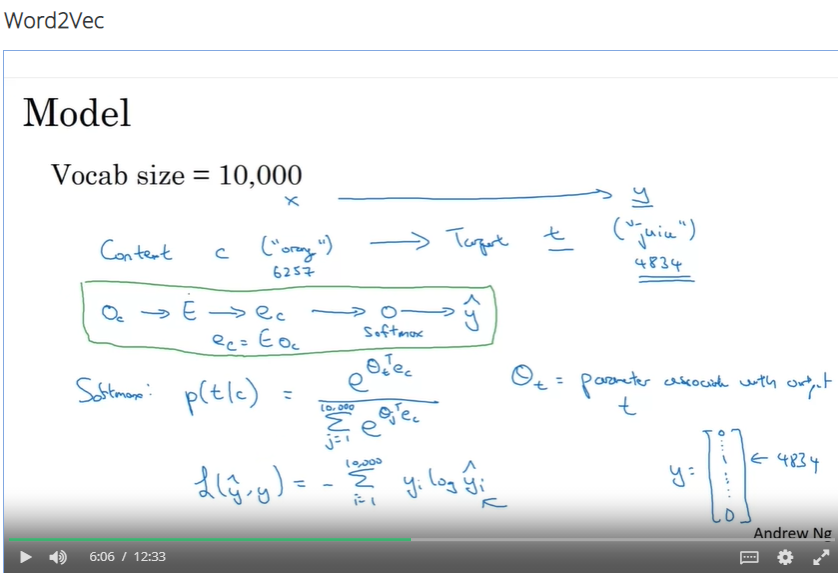 Word2Vec
Model
Vocab size = 10,000
x → y
Content c ("orange") → Target t ("juice")
6257 4834
O_c → E → e_c → o → ŷ
softmax
e_c = E O_c
Softmax: p(t|c) = e^{θ_t^T e_c} / Σ_{j=1}^{10,000} e^{θ_j^T e_c} θ_t = parameter associated with output t
L(ŷ, y) = - Σ_{i=1}^{10,000} y_i log ŷ_i y = [0 ⋮ 1 ⋮ 0] ← 4834
Andrew Ng
6:06 / 12:33